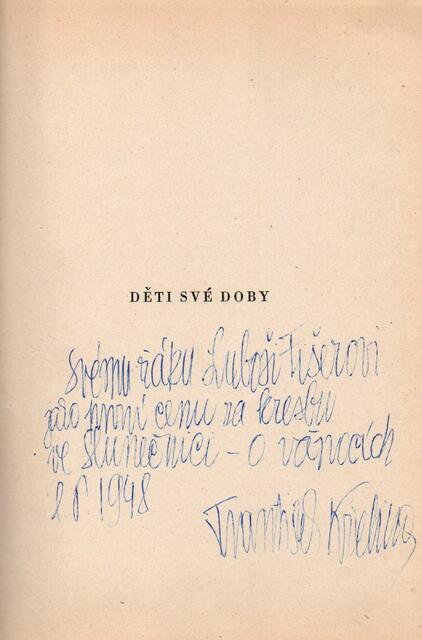 DĚTI SVÉ DOBY
svému žáku Luboši Fišerovi
jako první cenu za kresbu
ve Slunečnici – O vánocích
L.P. 1948
František Křelina